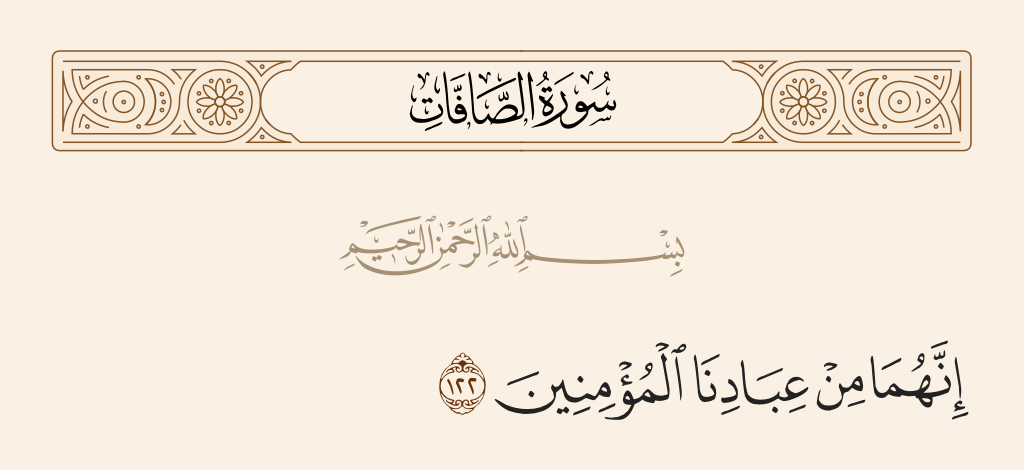 سُورَةُ الصَّافَّاتِ
بِسْمِ ٱللَّهِ ٱلرَّحْمَٰنِ ٱلرَّحِيمِ
إِنَّهُمَا مِنْ عِبَادِنَا ٱلْمُؤْمِنِينَ ١٢٢